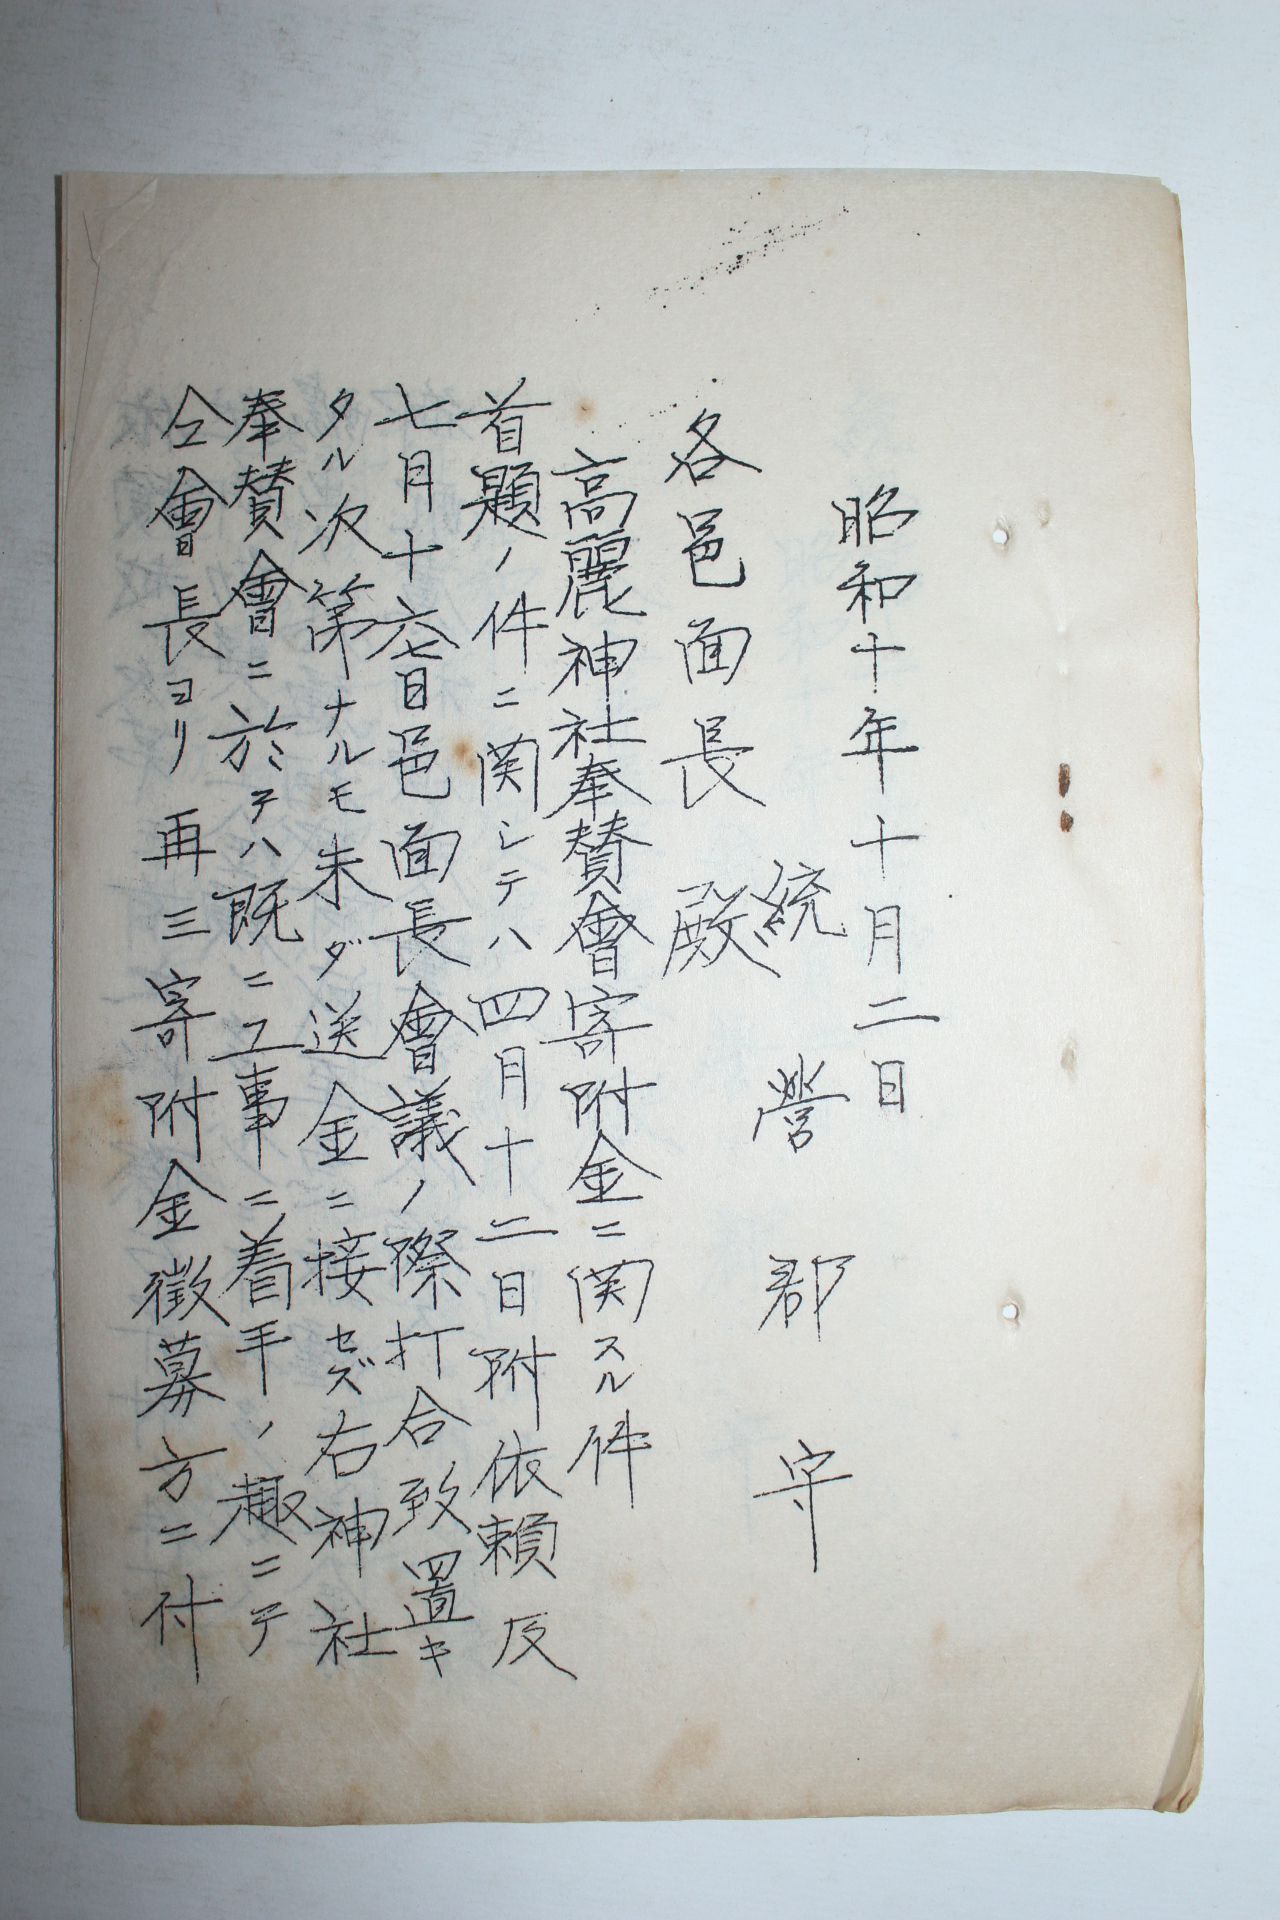 昭和十年十月二日
統營郡守
各邑面長殿
高麗神社奉賛會寄附金ニ関スル件
首題ノ件ニ関シテハ四月十二日附依賴及
七月十六七日邑面長會議ノ際打合致置キ
タル次第ナルモ未ダ送金ニ接セズ右神社
奉賛會ニ於テハ既ニ工事ニ着手ノ趣ニテ
仝會長ヨリ再三寄附金徴募方ニ付